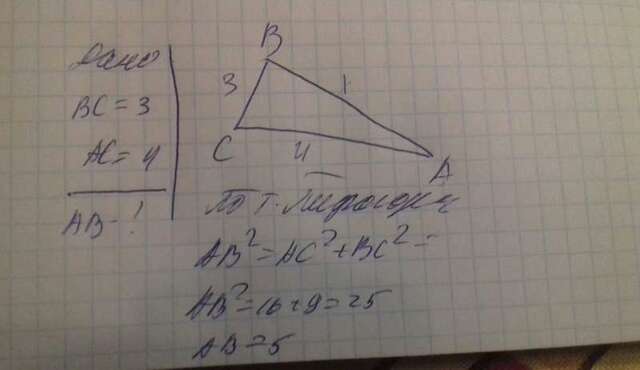 Дано
BC = 3
AC = 4
AB - ?
B
3
1
C
4
A
По т. Пифагора
AB² = AC² + BC² =
AB² = 16 + 9 = 25
AB = 5